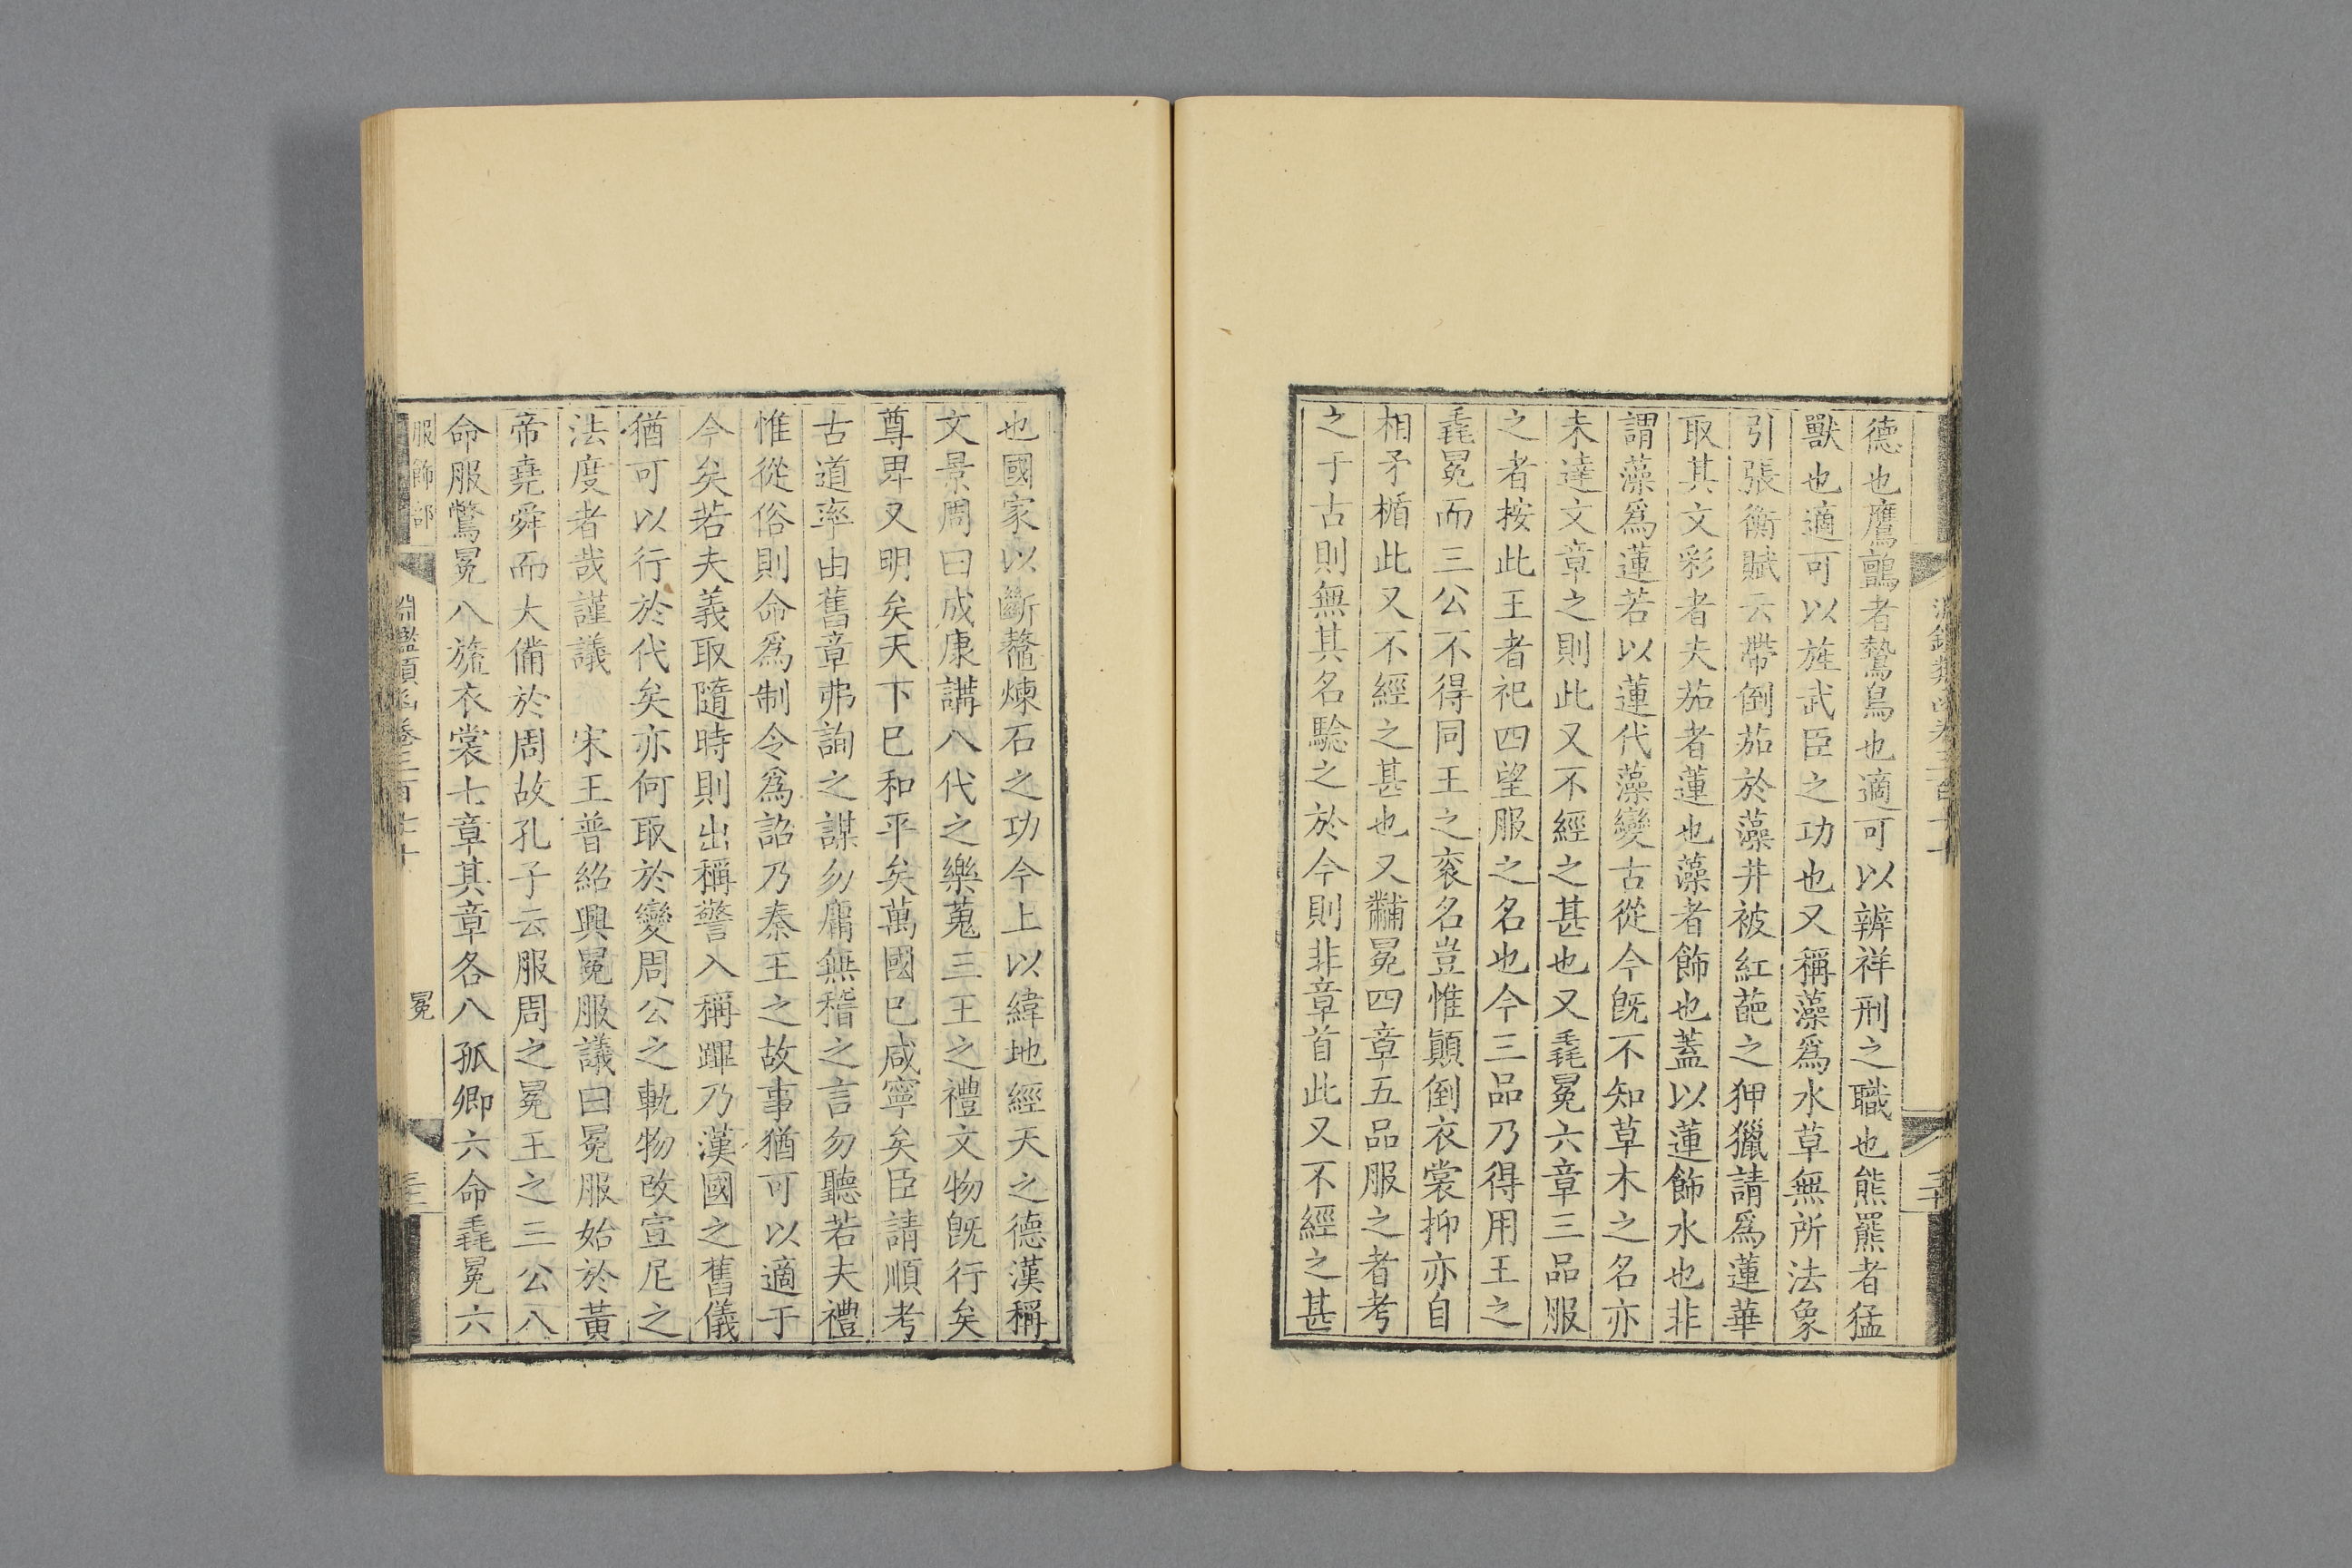 德也鷹鸇者鷙鳥也適可以辨祥刑之職也熊羆者猛
獸也適可以旌武臣之功也又稱藻爲水草無所法象
引張衡賦云帶倒茄於藻井被紅葩之狎獵請爲蓮華
取其文彩者夫茄者蓮也藻者飾也蓋以蓮飾水也非
謂藻爲蓮若以蓮代藻變古從今旣不知草木之名亦
未達文章之則此又不經之甚也又毳冕六章三品服
之者按此王者祀四望服之名也今三品乃得用王之
毳冕而三公不得同王之袞名豈惟顚倒衣裳抑亦自
相矛楯此又不經之甚也又黼冕四章五品服之者考
之于古則無其名驗之於今則非章首此又不經之甚
也國家以斷鼇煉石之功今上以緯地經天之德漢稱
文景周曰成康講八代之樂蒐三王之禮文物旣行矣
尊卑又明矣天下已和平矣萬國已咸寧矣臣請順考
古道率由舊章弗詢之謀勿庸無稽之言勿聽若夫禮
惟從俗則命爲制令爲詔乃秦王之故事猶可以適于
今矣若夫義取隨時則出稱警入稱蹕乃漢國之舊儀
猶可以行於代矣亦何取於變周公之軌物改宣尼之
法度者哉謹議 宋王普紹興冕服議曰冕服始於黃
帝堯舜而大備於周故孔子云服周之冕王之三公八
命服鷩冕八旒衣裳七章其章各八孤卿六命毳冕六
服飾部
淵鑑類函卷三百七十
冕